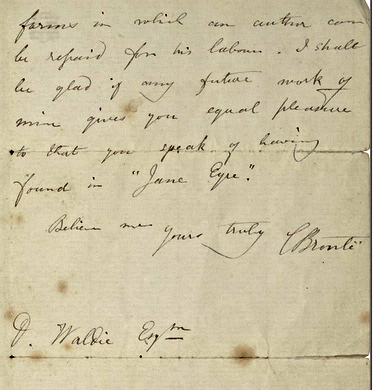 forms in which an author can
be repaid for his labour. I shall
be glad if any future work of
mine gives you equal pleasure
to that you speak of having
found in "Jane Eyre".
Believe me
yours truly CBrontë
D. Waldie Esqre